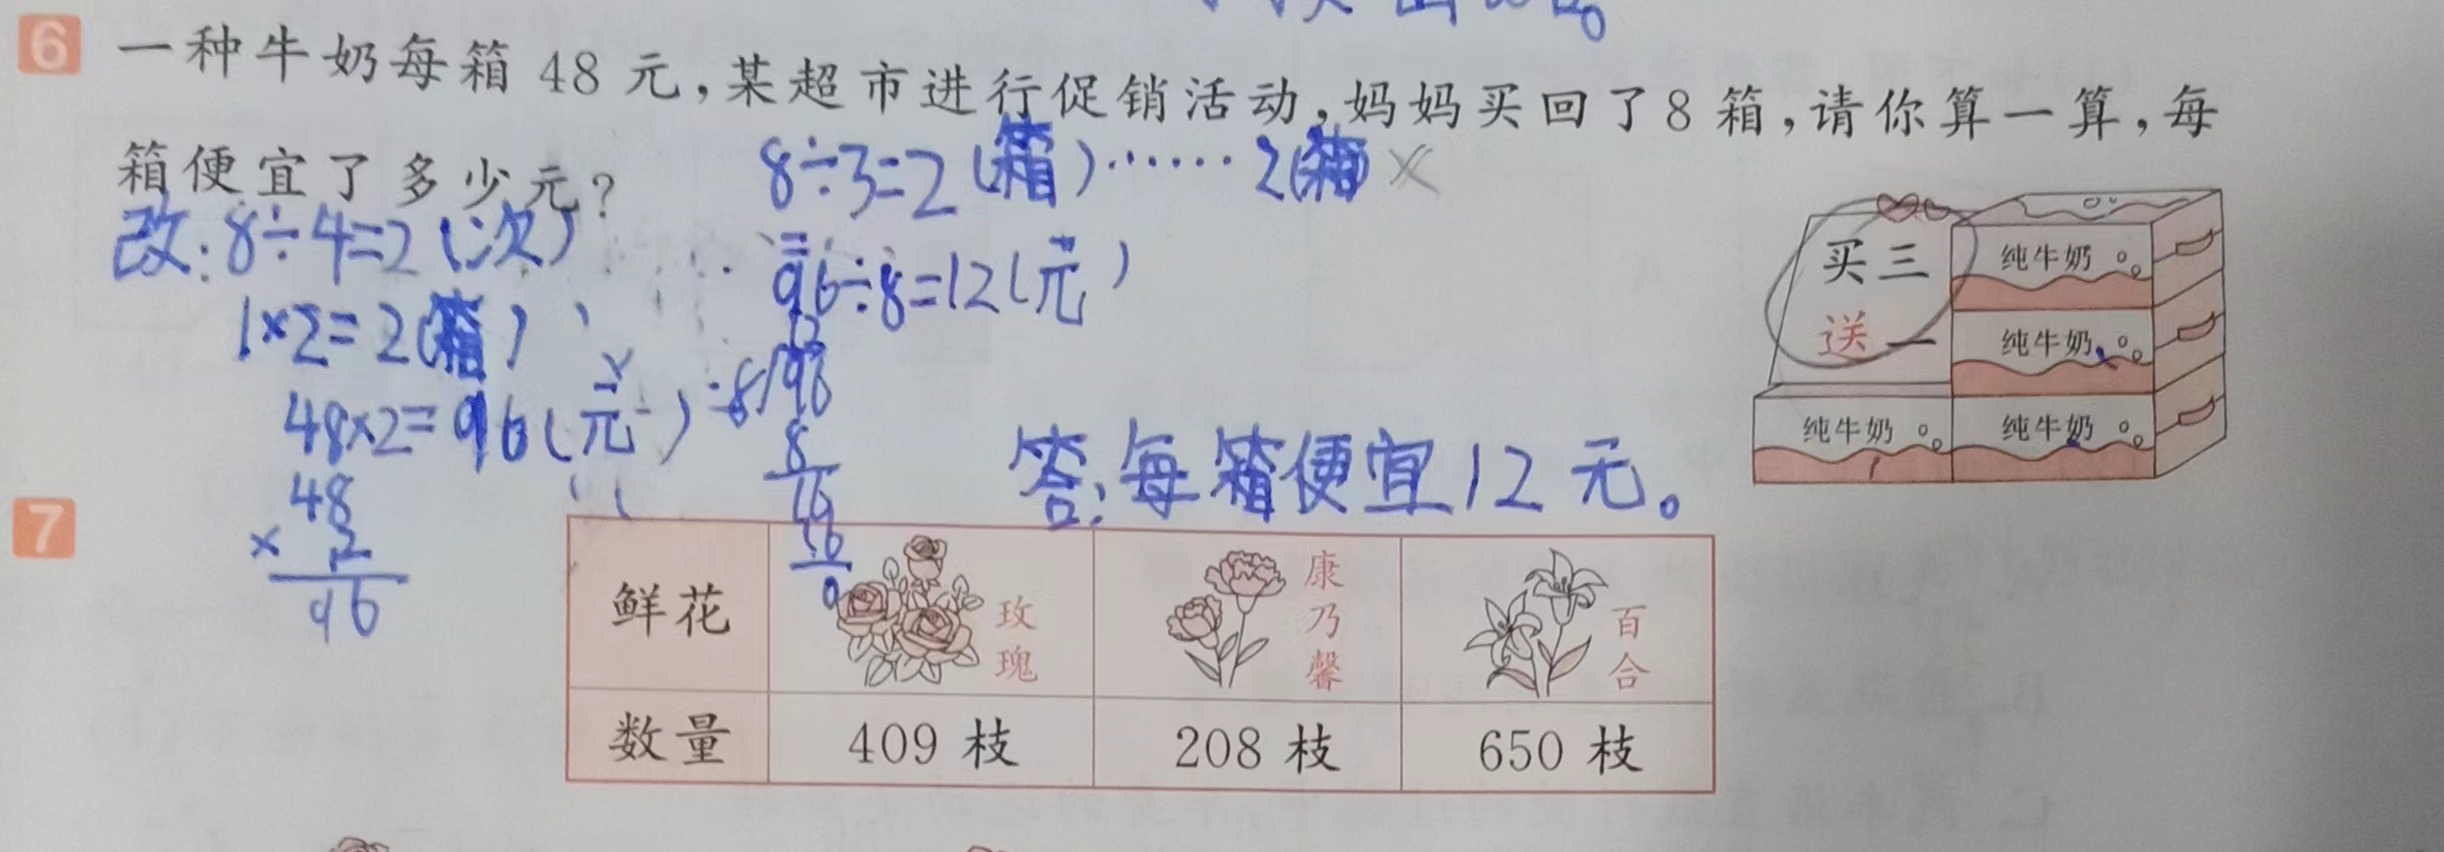 6 一种牛奶每箱 48 元,某超市进行促销活动,妈妈买回了8 箱,请你算一算,每
箱便宜了多少元?
8÷3=2(箱)……2(箱)×
改:8÷4=2(次)
1×2=2(箱)
48×2=96(元)
48
× 2
96
96÷8=12(元)
12
8 96
8
16
16
0
答:每箱便宜12元。
买三
送一
纯牛奶
纯牛奶
纯牛奶 纯牛奶
7
鲜花 玫瑰 康乃馨 百合
数量 409 枝 208 枝 650 枝